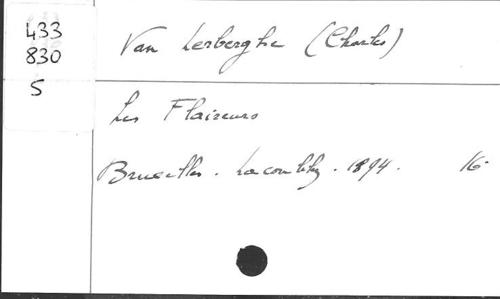 433
830
S
Van Lerberghe (Charles)
Les Flaireurs
Bruxelles. Lacomblez. 1894. 16°